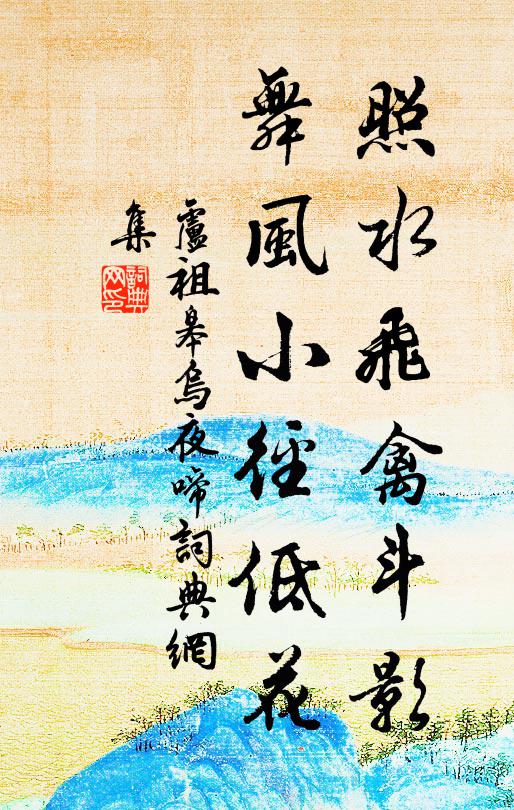 照水飛禽斗影
舞風小徑低花
盧祖皋烏夜啼詞典網
集
詞典網印